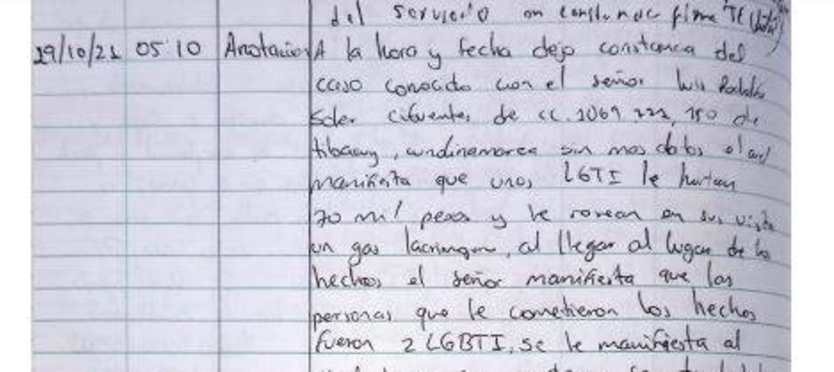 del servicio on constancia firma TE
29/10/21 05:10 Anotacion A la hora y fecha dejo constancia del
caso conocido con el señor Luis
Soler Cifuentes de cc. 1069 222, 150 de
tibacuy, cundinamarca sin mas datos el cual
manifiesta que unos LGTI le hurtan
70 mil pesos y le rosean en sus vista
un gas lacrimogeno, al llegar al lugar de lo
hechos el señor manifiesta que las
personas que le cometieron los hechos
fueron 2 LGBTI, se le manifiesta al